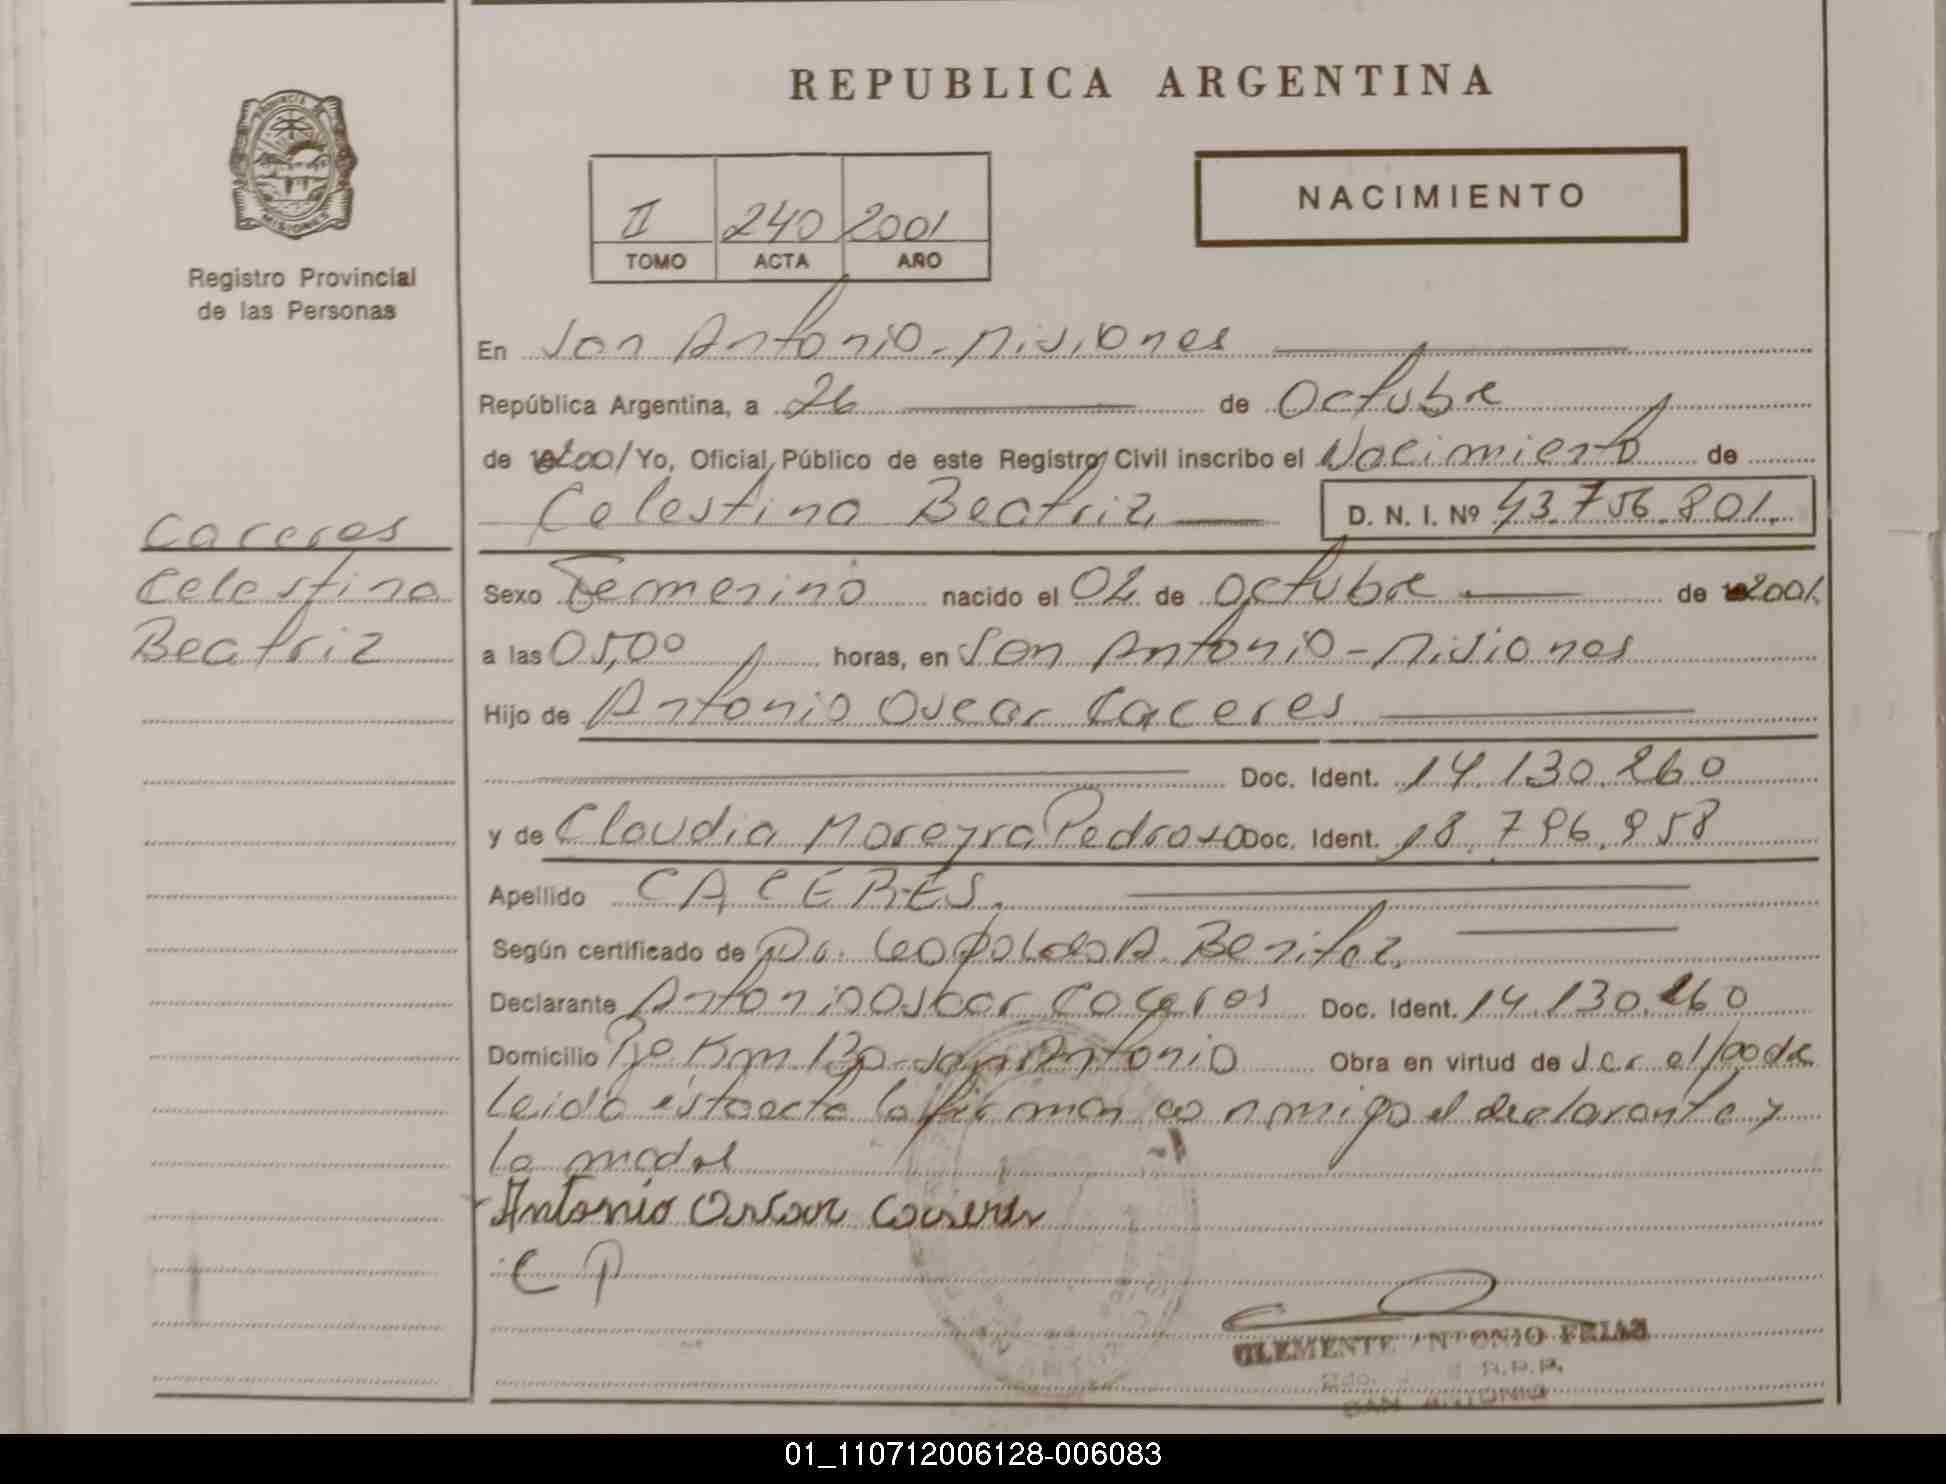 PROVINCIA DE
MISIONES
Registro Provincial
de las Personas
Caceres
Celestina
Beatriz
REPUBLICA ARGENTINA
II 240 2001
TOMO ACTA AÑO
NACIMIENTO
En San Antonio - Misiones
República Argentina, a 26 de Octubre
de 2001 Yo, Oficial Público de este Registro Civil inscribo el Nacimiento de
Celestina Beatriz D. N. I. Nº 43.756.801.
Sexo Femenino nacido el 02 de Octubre de 2001.
a las 05,00 horas, en San Antonio - Misiones
Hijo de Antonio Oscar Caceres
Doc. Ident. 14.130.260
y de Claudia Moreyra Pedroso Doc. Ident. 18.796.958
Apellido CACERES.
Según certificado de Dr. Leopoldo A. Benitez.
Declarante Antonio Oscar Caceres Doc. Ident. 14.130.260
Domicilio Km 130 - San Antonio Obra en virtud de ser el padre
Leida esta acta la firman conmigo el declarante y
la madre
Antonio Oscar Caseres
C P
CLEMENTE ANTONIO FRIAS
R.P.P.
SAN ANTONIO
01_110712006128-006083